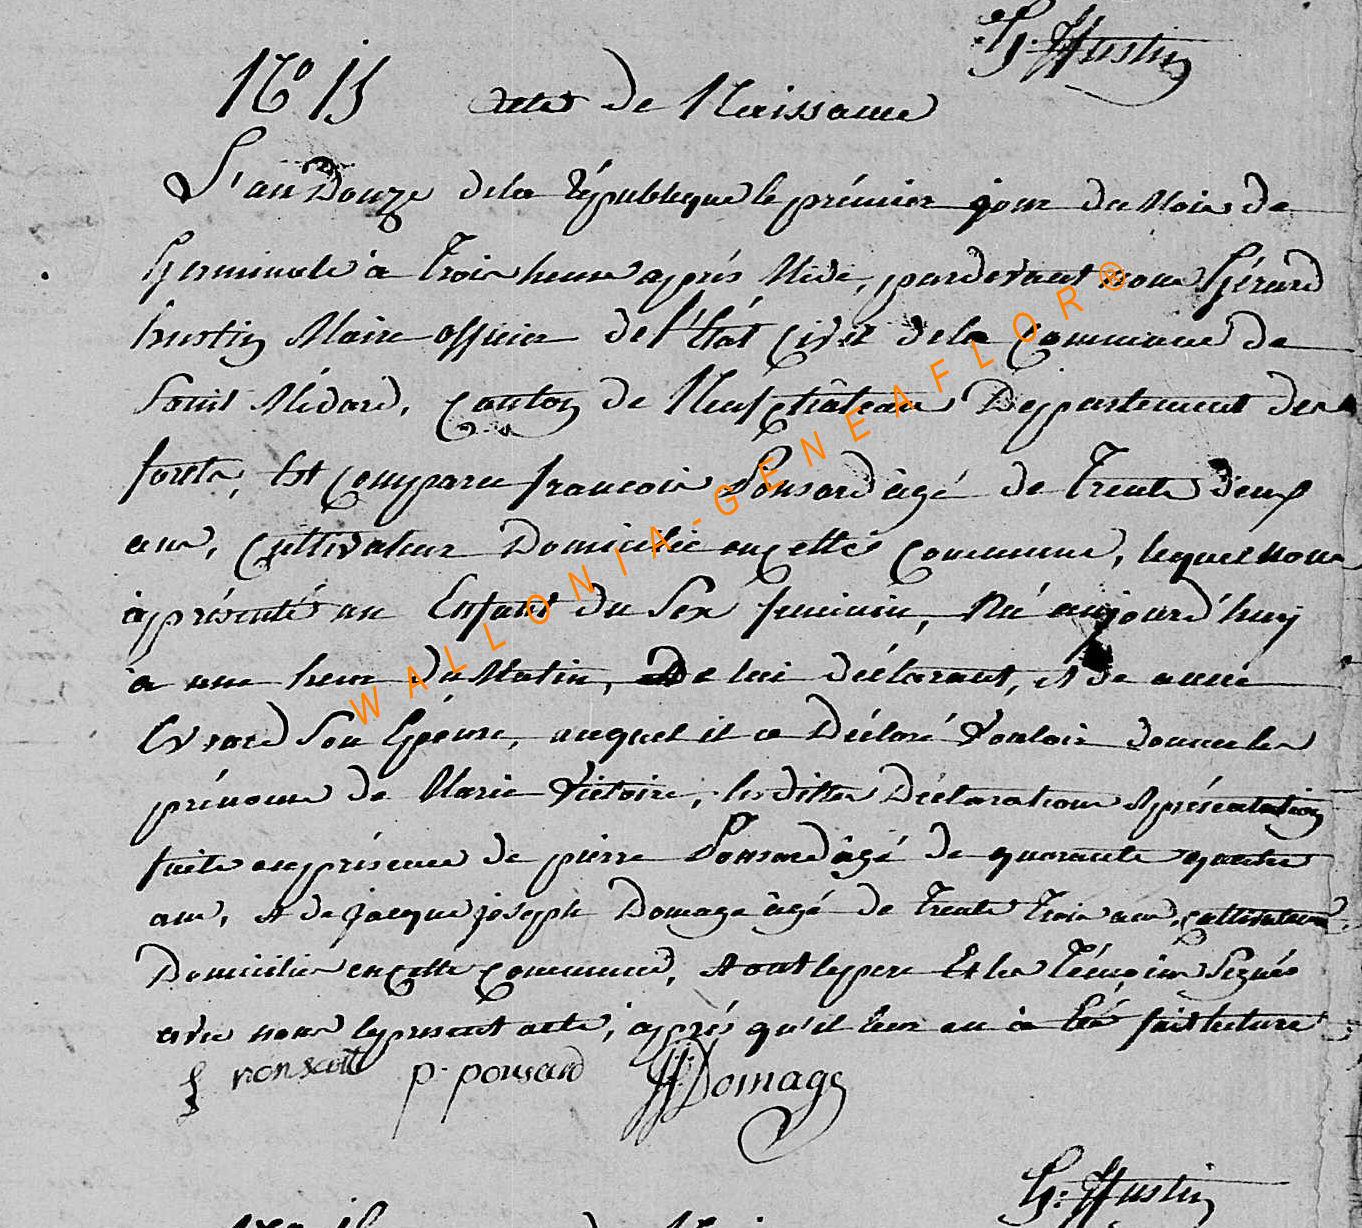 G. Hustin
N.o 15 acte de Naissance
L'an Douze dela République le prémier jour du Mois de
Germinale à Trois heure après Midi, pardevant nous Gérard
hustin Maire officier del'État Civil dela Commune de
Saint Médard, Canton de Neufchâteau Deppartement des
forets, Est Comparu francois Ponsard âgé de Trente deux
ans, Cultivateur Domicilié en cette Commune, lequel nous
à présenté un Enfant du Sex feminin, Né aujourd'huij
a une heure du Matin, De lui déclarant, et de anne
Evrard Son Epouse, auquel il a Déclaré Vouloir donner les
prénoms de Marie Victoire, les dittes Déclarations et présentation
faite en présence de pierre Ponsard âgé de quarante quatre
ans, et de jacque joseph Domage âgé de Trente Trois ans, cultivateurs
Domiciliés en cette Commune, et ont le pere Et les Témoins Signés
avec nous le present acte, après qu'il leur en à Eté fait lecture
f ponsard p. ponsard JJ Domage
G. Hustin
de
WALLONIA-GENEAFLOR®